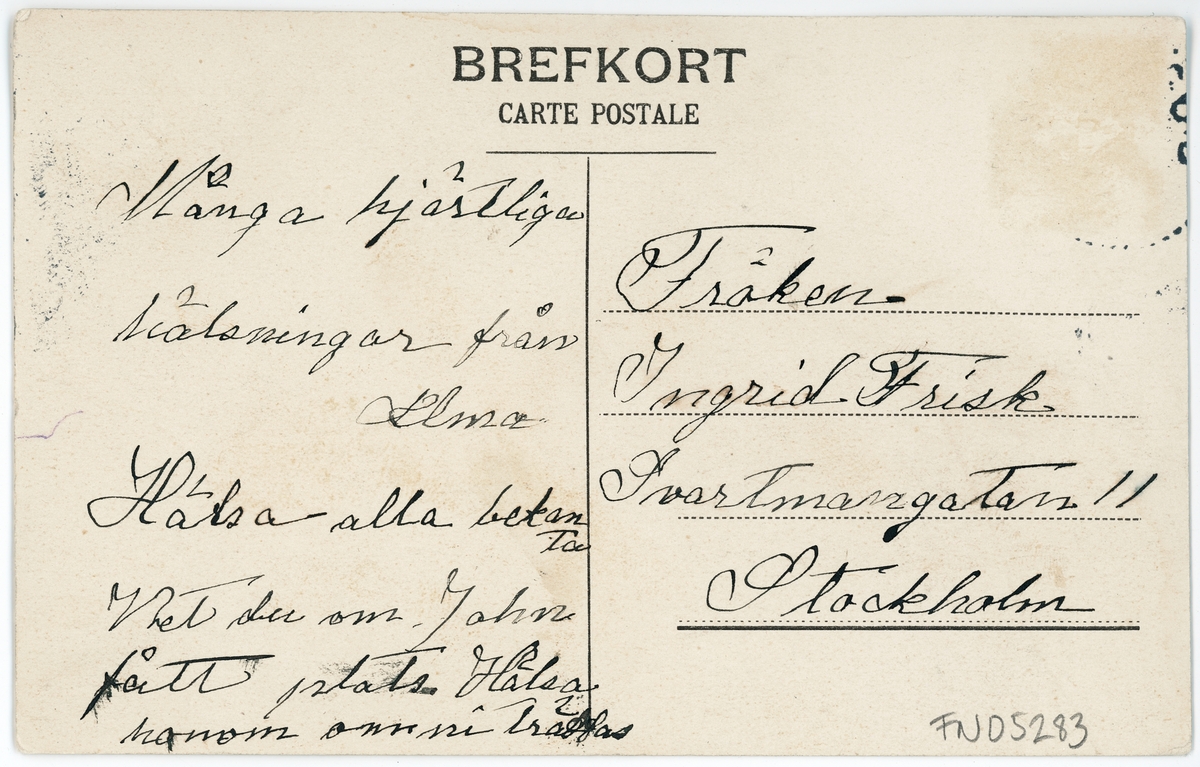 BREFKORT
CARTE POSTALE
Många hjärtliga
hälsningar från
Elma
Hälsa alla bekan
ta
Vet du om John
fått plats Hälsa
honom om ni träffas
Fröken
Ingrid Frisk
Svartmangatan 11
Stockholm
FND5283